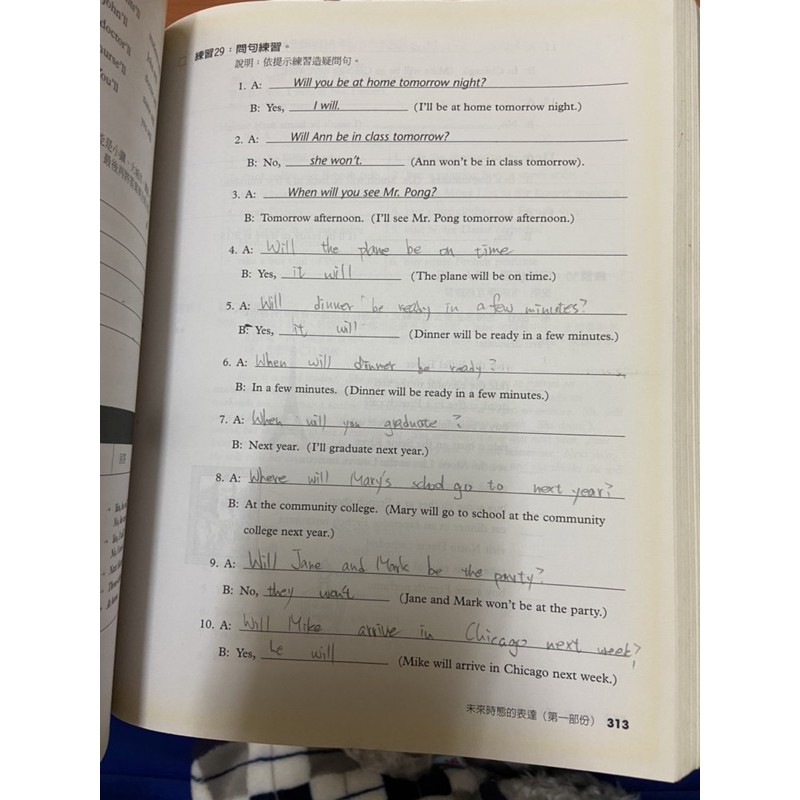 john'll
doctor'll
You'll
練習29:問句練習。
說明:依提示練習造疑問句。
1. A: Will you be at home tomorrow night?
B: Yes, I will. (I'll be at home tomorrow night.)
2. A: Will Ann be in class tomorrow?
B: No, she won't. (Ann won't be in class tomorrow).
3. A: When will you see Mr. Pong?
B: Tomorrow afternoon. (I'll see Mr. Pong tomorrow afternoon.)
4. A: Will the plane be on time
B: Yes, it will (The plane will be on time.)
5. A: Will dinner be ready in a few minutes?
B: Yes, it will (Dinner will be ready in a few minutes.)
6. A: When will dinner be ready?
B: In a few minutes. (Dinner will be ready in a few minutes.)
7. A: When will you graduate?
B: Next year. (I'll graduate next year.)
8. A: Where will Mary's school go to next year?
B: At the community college. (Mary will go to school at the community
college next year.)
9. A: Will Jane and Mark be the party?
B: No, they won't (Jane and Mark won't be at the party.)
10. A: Will Mike arrive in Chicago next week?
B: Yes, he will (Mike will arrive in Chicago next week.)
未來時態的表達(第一部份) 313